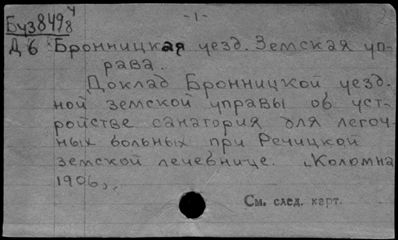 -1-
Буз849 4/8
Д6 Бронницкая уезд. Земская уп-
рава.
Доклад Бронницкой уезд.
ной земской управы об уст-
ройстве санатория для легоч-
ных больных при Речицкой
земской лечебнице. Коломна
1906,
См. след. карт.